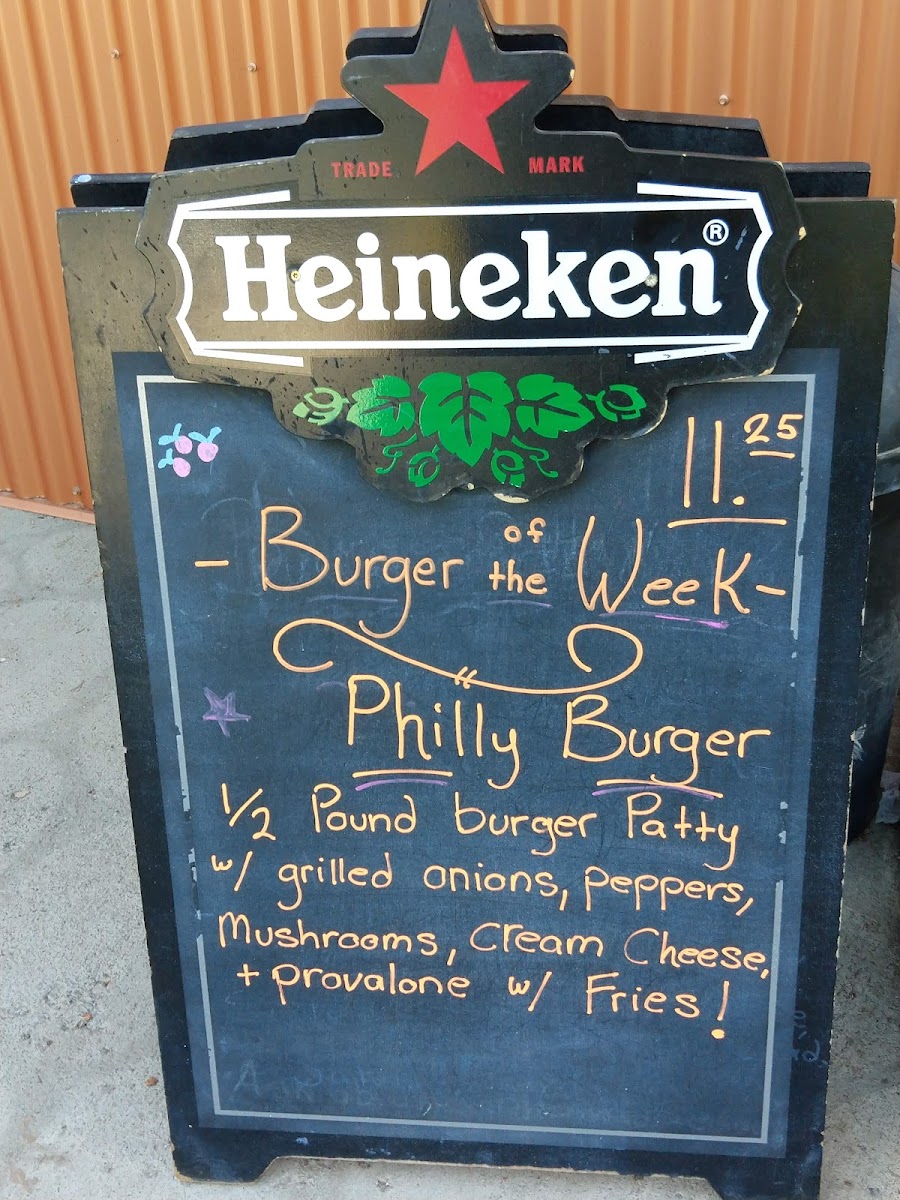 TRADE MARK
Heineken®
11.25
- Burger of the Week -
Philly Burger
1/2 Pound burger Patty
w/ grilled onions, peppers,
Mushrooms, Cream Cheese,
+ provalone w/ Fries!